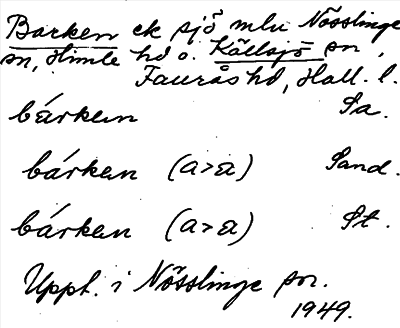 Barken ek sjö mlu Nösslinge
sn, Himle hd o. Källsjö sn,
Faurås hd, Hall. l.
bárken Sa.
bárken (a>a) Sand.
bárken (a>a) St.
Uppt. i Nösslinge sn.
1949.